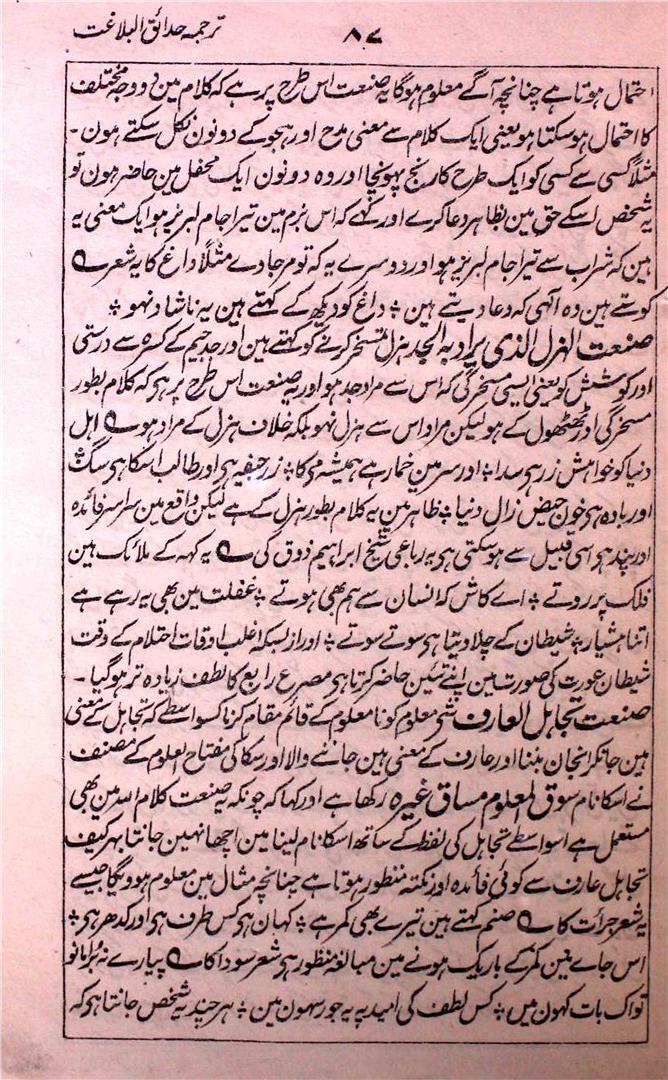 ترجمہ حدائق البلاغت
۸۷
احتمال ہوتا ہے چنانچہ آگے معلوم ہوگا یہ صنعت اس طرح پر ہے کہ کلام مین دو وجہ مختلف
کا احتمال ہو سکتا ہو یعنی ایک کلام سے معنی مدح اور ہجو کے دونون نکل سکتے ہون۔
مثلاً کسی سے کسی کو ایک طرح کا رنج پہونچا اور وہ دونون ایک محفل مین حاضر ہون تو
یہ شخص اسکے حق مین بظاہر دعا کرے اور کہے کہ اس بزم مین تیرا جام لبریز ہو ایک معنی یہ
ہین کہ شراب سے تیرا جام لبریز ہو اور دوسرے یہ کہ تو مر جاوے مثلاً داغ کا یہ شعر ؎
کوستے ہین وہ آلہی کہ دعا دیتے ہین ؞ داغ کو دیکھ کے کہتے ہین یہ ناشاد نہو ؞
صنعت الہزل الذی یراد بہ الجد ہزل تمسخر کرنے کو کہتے ہین اور جد جیم کے کسرہ سے درستی
اور کوشش کو یعنی ایسی مسخرگی کہ اس سے مراد جد ہو اور یہ صنعت اس طرح پر ہی کہ کلام بطور
مسخرگی اور ٹھٹھول کے ہو لیکن مراد اس سے ہزل نہو بلکہ خلاف ہزل کے مراد ہو ؎ اہل
دنیا کو خواہش زر ہی سدا ؞ اور سر مین خمار ہے ہمیشہ می کا ؞ زر جیفہ ہی اور طالب اسکا ہی سگ ؞
اور بادہ ہی خون حیض زال دنیا ؞ ظاہر مین یہ کلام بطور ہزل کے ہے لیکن واقع مین سراسر فائدہ
اور پند ہی اسی قبیل سے ہو سکتی ہی یہ رباعی شیخ ابراہیم ذوق کی ؎ یہ کہہ کے ملائک ہین
فلک پر روتے ؞ اے کاش کہ انسان سے ہم بھی ہوتے ؞ غفلت مین بھی یہ رہے ہے
اتنا ہشیار ؞ شیطان کے چلا دیتا ہی سوتے سوتے ؞ اور از بسکہ اغلب اوقات احتلام کے وقت
شیطان عورت کی صورت مین اپنے تئین حاضر کرتا ہی مصرع رابع کا لطف زیادہ تر ہوگیا۔
صنعت تجاہل العارف شی معلوم کو نا معلوم کے قائم مقام کرنا کسواسطے کہ تجاہل کے معنی
ہین جانکر انجان بننا اور عارف کے معنی ہین جاننے والا اور سکاکی مفتاح العلوم کے مصنف
نے اسکا نام سوق المعلوم مساق غیرہ رکھا ہے اور کہا کہ چونکہ یہ صنعت کلام اللہ مین بھی
مستعمل ہے اسواسطے تجاہل کی لفظ کے ساتھ اسکا نام لینا مین اچھا نہین جانتا بہر کیف
تجاہل عارف سے کوئی فائدہ اور نکتہ منظور ہوتا ہے چنانچہ مثال مین معلوم ہوویگا جیسے
یہ شعر جرأت کا ؎ صنم کہتے ہین تیرے بھی کمر ہے ؞ کہان ہی کس طرف ہی اور کدھر ہی ؞
اس جاے مین کمر کے باریک ہونے مین مبالغہ منظور ہی شعر سودا کا ؎ پیارے نہ برا مانو
تو اک بات کہون مین ؞ کس لطف کی امید پہ یہ جور سہون مین ؞ ہر چند یہ شخص جانتا ہی کہ